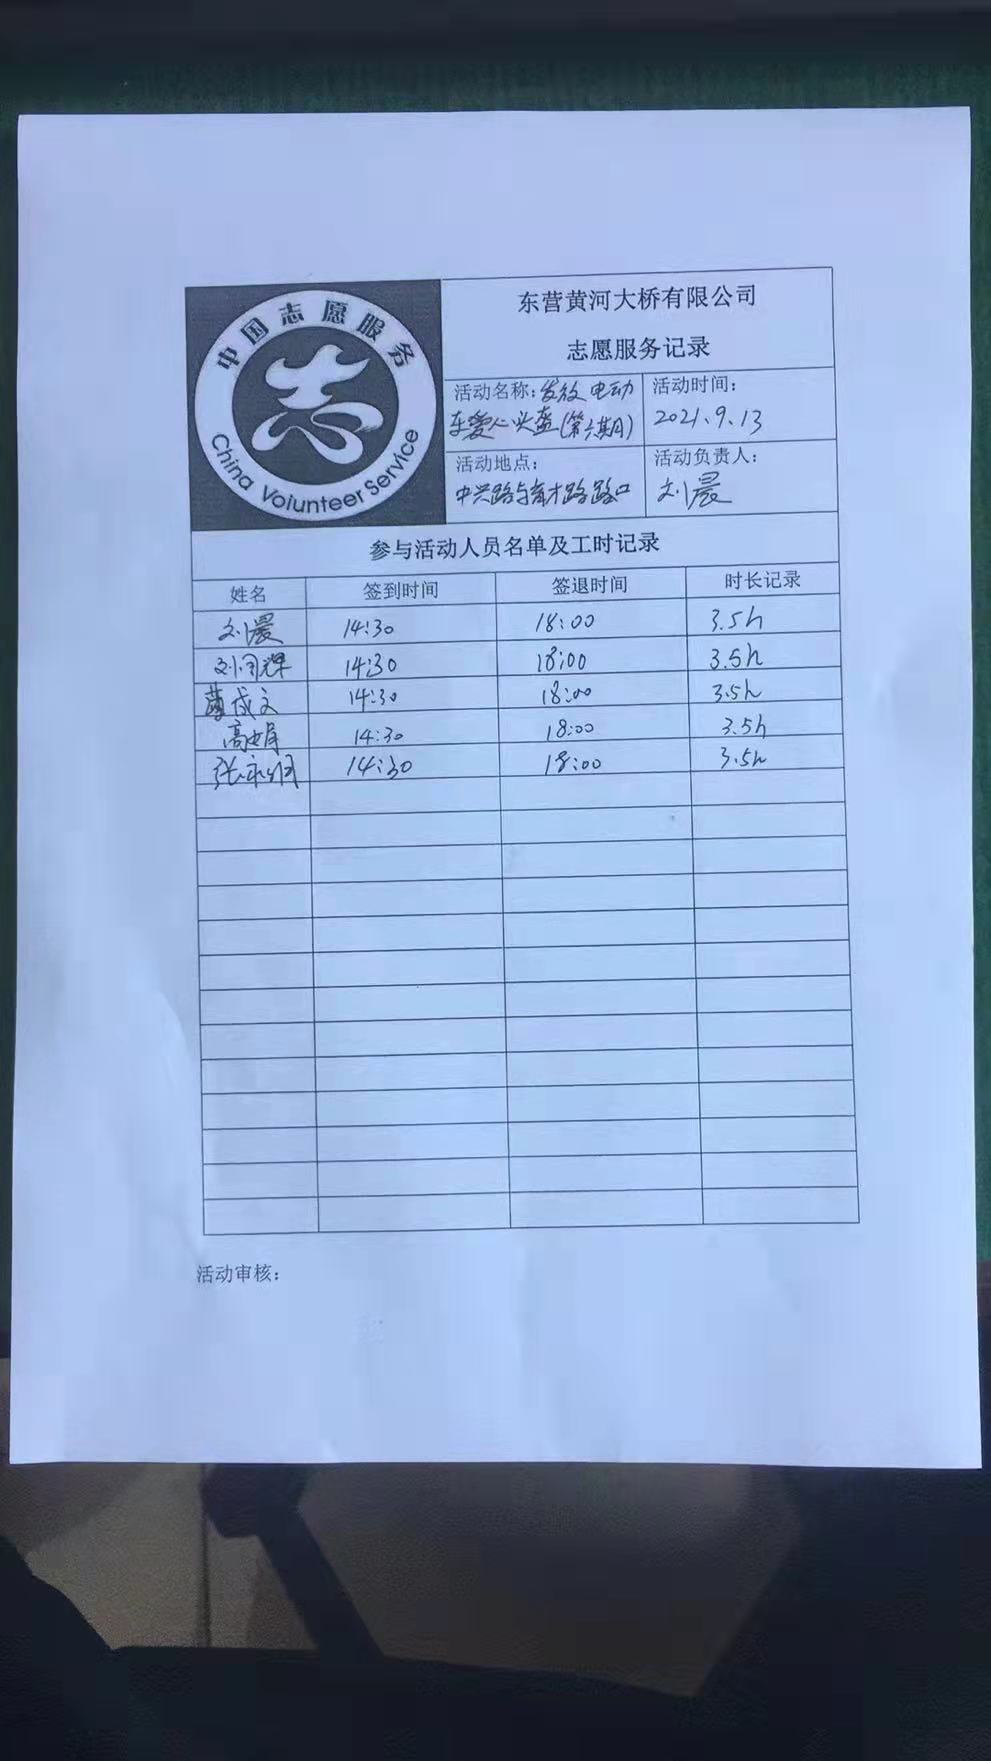 中国志愿服务
志
China Volunteer Service
东营黄河大桥有限公司
志愿服务记录
活动名称：发放电动
车爱心头盔(第六期)
活动时间：
2021.9.13
活动地点：
中兴路与育才路路口
活动负责人：
刘晨
参与活动人员名单及工时记录
姓名 签到时间 签退时间 时长记录
刘晨 14:30 18:00 3.5h
刘同辉 14:30 18:00 3.5h
成文 14:30 18:00 3.5h
高娟 14:30 18:00 3.5h
张永 14:30 18:00 3.5h
活动审核：